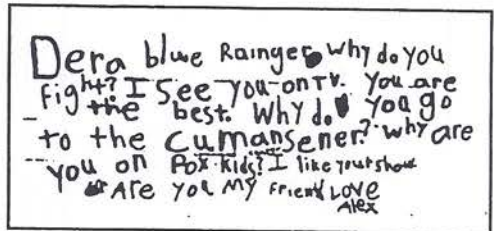 Dera blue Rainger why do you
fight? I See you on TV. you are
the best. Why do you go
to the cumansener? why are
you on Fox kids? I like yourshow
Are you My Friend Love
Alex